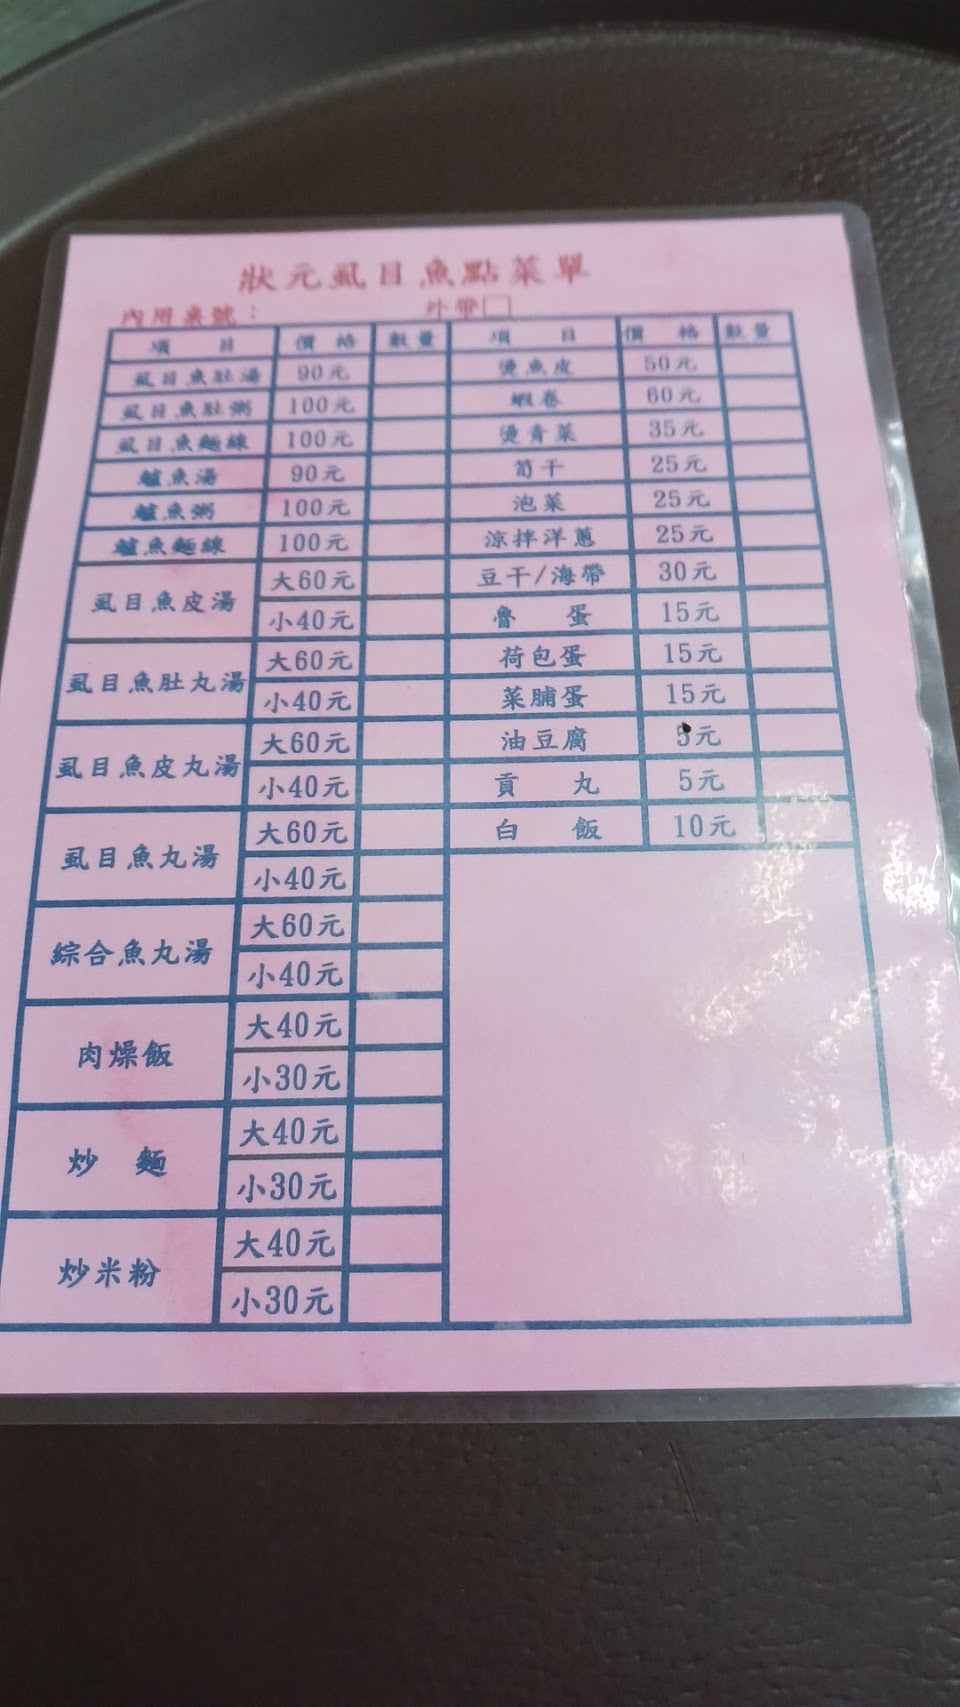 狀元虱目魚點菜單
內用桌號： 外帶□
項 目 價 格 數量 項 目 價 格 數量
虱目魚肚湯 90元 燙魚皮 50元
虱目魚肚粥 100元 蝦卷 60元
虱目魚麵線 100元 燙青菜 35元
鱸魚湯 90元 筍干 25元
鱸魚粥 100元 泡菜 25元
鱸魚麵線 100元 涼拌洋蔥 25元
虱目魚皮湯 大60元 豆干/海帶 30元
小40元 魯 蛋 15元
虱目魚肚丸湯 大60元 荷包蛋 15元
小40元 菜脯蛋 15元
虱目魚皮丸湯 大60元 油豆腐 5元
小40元 貢 丸 5元
虱目魚丸湯 大60元 白 飯 10元
小40元
綜合魚丸湯 大60元
小40元
肉燥飯 大40元
小30元
炒 麵 大40元
小30元
炒米粉 大40元
小30元